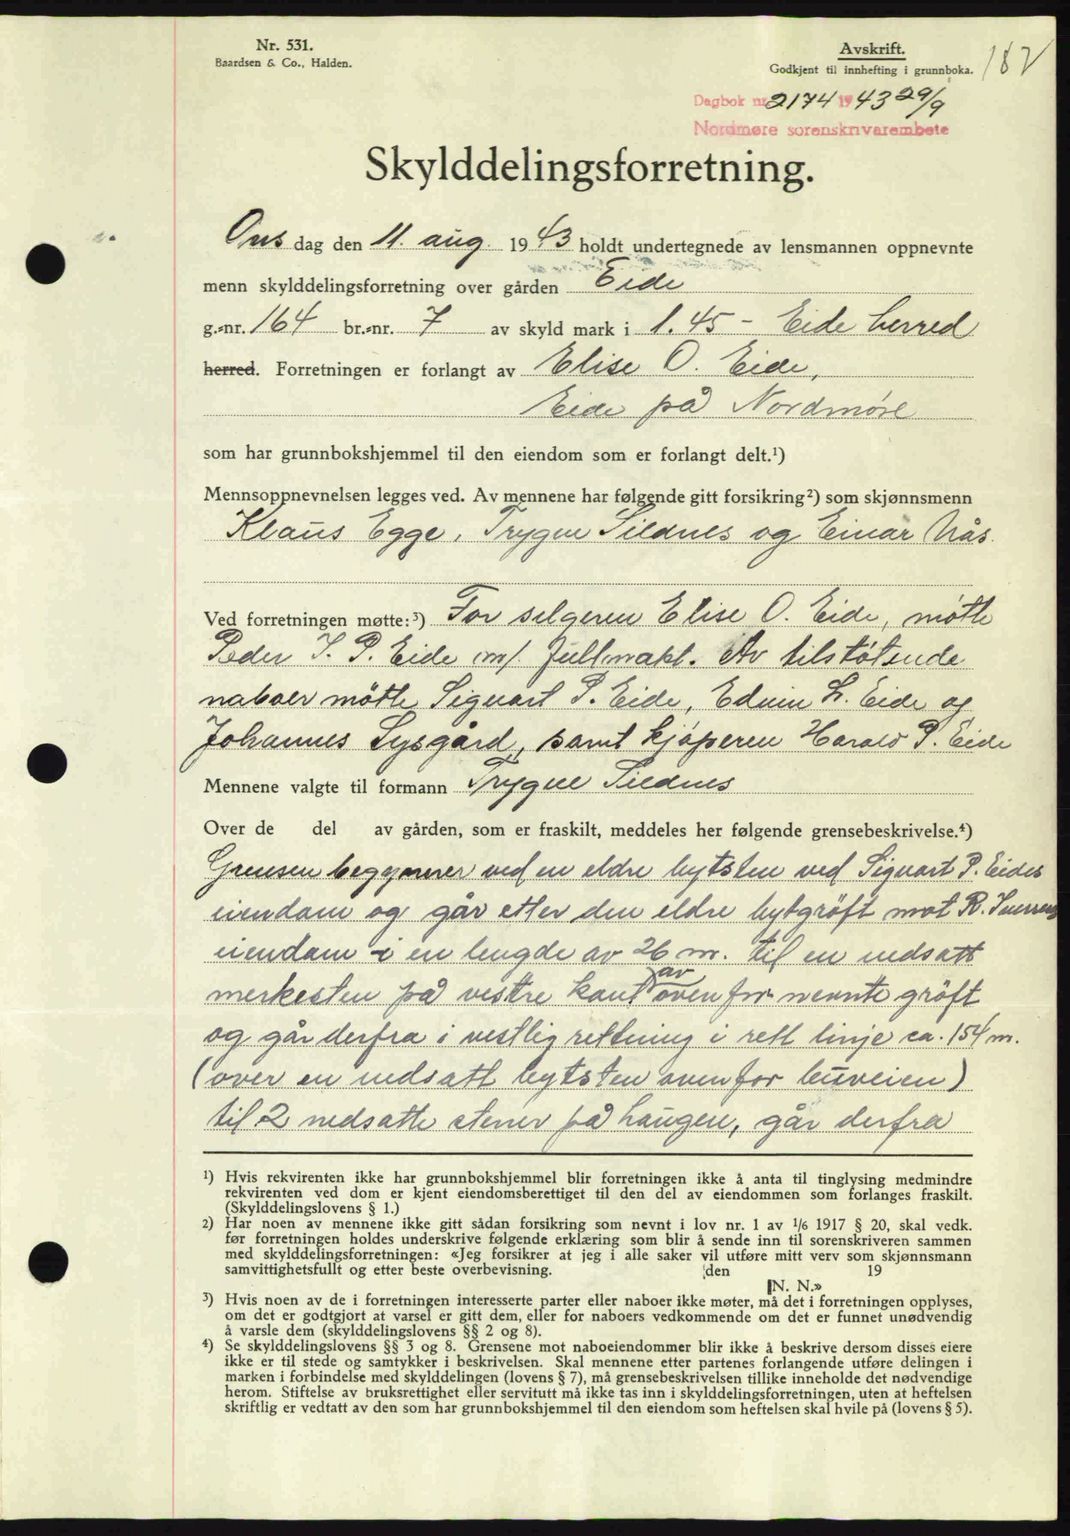 Nr. 531.
Baardsen & Co., Halden.
Avskrift.
Godkjent til innhefting i grunnboka.
182
Dagbok nr. 2174 1943 29/9
Nordmøre sorenskriverembete
Skylddelingsforretning.
Ons dag den 11. aug. 1943 holdt undertegnede av lensmannen oppnevnte
menn skylddelingsforretning over gården Eide
g.-nr. 164 br.-nr. 7 av skyld mark i 1.45 - Eide herred
herred. Forretningen er forlangt av Elise O. Eide,
Eide på Nordmøre
som har grunnbokshjemmel til den eiendom som er forlangt delt.¹)
Mennsoppnevnelsen legges ved. Av mennene har følgende gitt forsikring²) som skjønnsmenn
Klaus Egge, Trygve Sildnes og Einar Nås.
Ved forretningen møtte:³) For selgeren Elise O. Eide, møtte
Peder I. P. Eide m/ fullmakt. Av tilstøtende
naboer møtte Sigvart P. Eide, Edvin L. Eide og
Johannes Lysgård, samt kjøperen Harald P. Eide
Mennene valgte til formann Trygve Sildnes
Over de del av gården, som er fraskilt, meddeles her følgende grensebeskrivelse.⁴)
Grensen begynner ved en eldre bytsten ved Sigvart P. Eides
eiendom og går etter den eldre bytgrøft mot R.
eiendom i en lengde av 26 m. til en nedsatt
merkesten på vestre kant av ovenfor nevnte grøft
og går derfra i vestlig retning i rett linje ca. 154 m.
(over en nedsatt bytsten ovenfor buveien)
til 2 nedsatte stener på haugen, går derfra
¹) Hvis rekvirenten ikke har grunnbokshjemmel blir forretningen ikke å anta til tinglysing medmindre
rekvirenten ved dom er kjent eiendomsberettiget til den del av eiendommen som forlanges fraskilt.
(Skylddelingslovens § 1.)
²) Har noen av mennene ikke gitt sådan forsikring som nevnt i lov nr. 1 av ¹/₆ 1917 § 20, skal vedk.
før forretningen holdes underskrive følgende erklæring som blir å sende inn til sorenskriveren sammen
med skylddelingsforretningen: «Jeg forsikrer at jeg i alle saker vil utføre mitt verv som skjønnsmann
samvittighetsfullt og etter beste overbevisning. den 19
N. N.»
³) Hvis noen av de i forretningen interesserte parter eller naboer ikke møter, må det i forretningen opplyses,
om det er godtgjort at varsel er gitt dem, eller for naboers vedkommende om det er funnet unødvendig
å varsle dem (skylddelingslovens §§ 2 og 8).
⁴) Se skylddelingslovens §§ 3 og 8. Grensene mot naboeiendommer blir ikke å beskrive dersom disses eiere
ikke er til stede og samtykker i beskrivelsen. Skal mennene etter partenes forlangende utføre delingen i
marken i forbindelse med skylddelingen (lovens § 7), må grensebeskrivelsen tillike inneholde det nødvendige
herom. Stiftelse av bruksrettighet eller servitutt må ikke tas inn i skylddelingsforretningen, uten at heftelsen
skriftlig er vedtatt av den som har grunnbokshjemmel til den eiendom som heftelsen skal hvile på (lovens § 5).